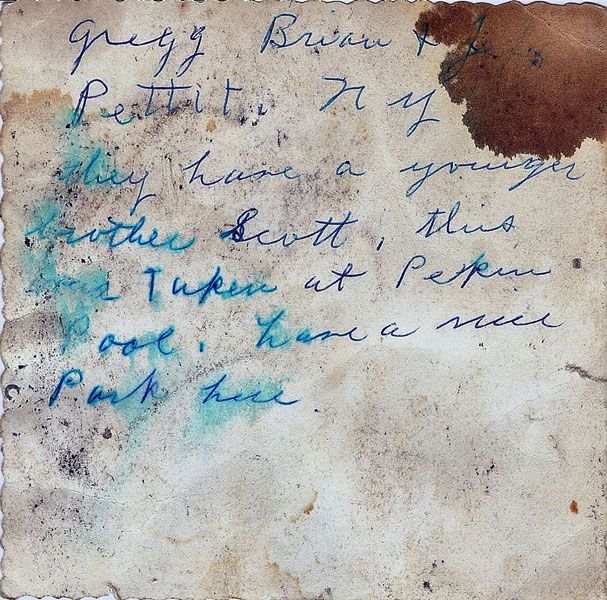 Gregg Brian +
Pettit, N Y
they have a younger
brother Scott, this
was Taken at Pekin
Pool. have a nice
Park here.